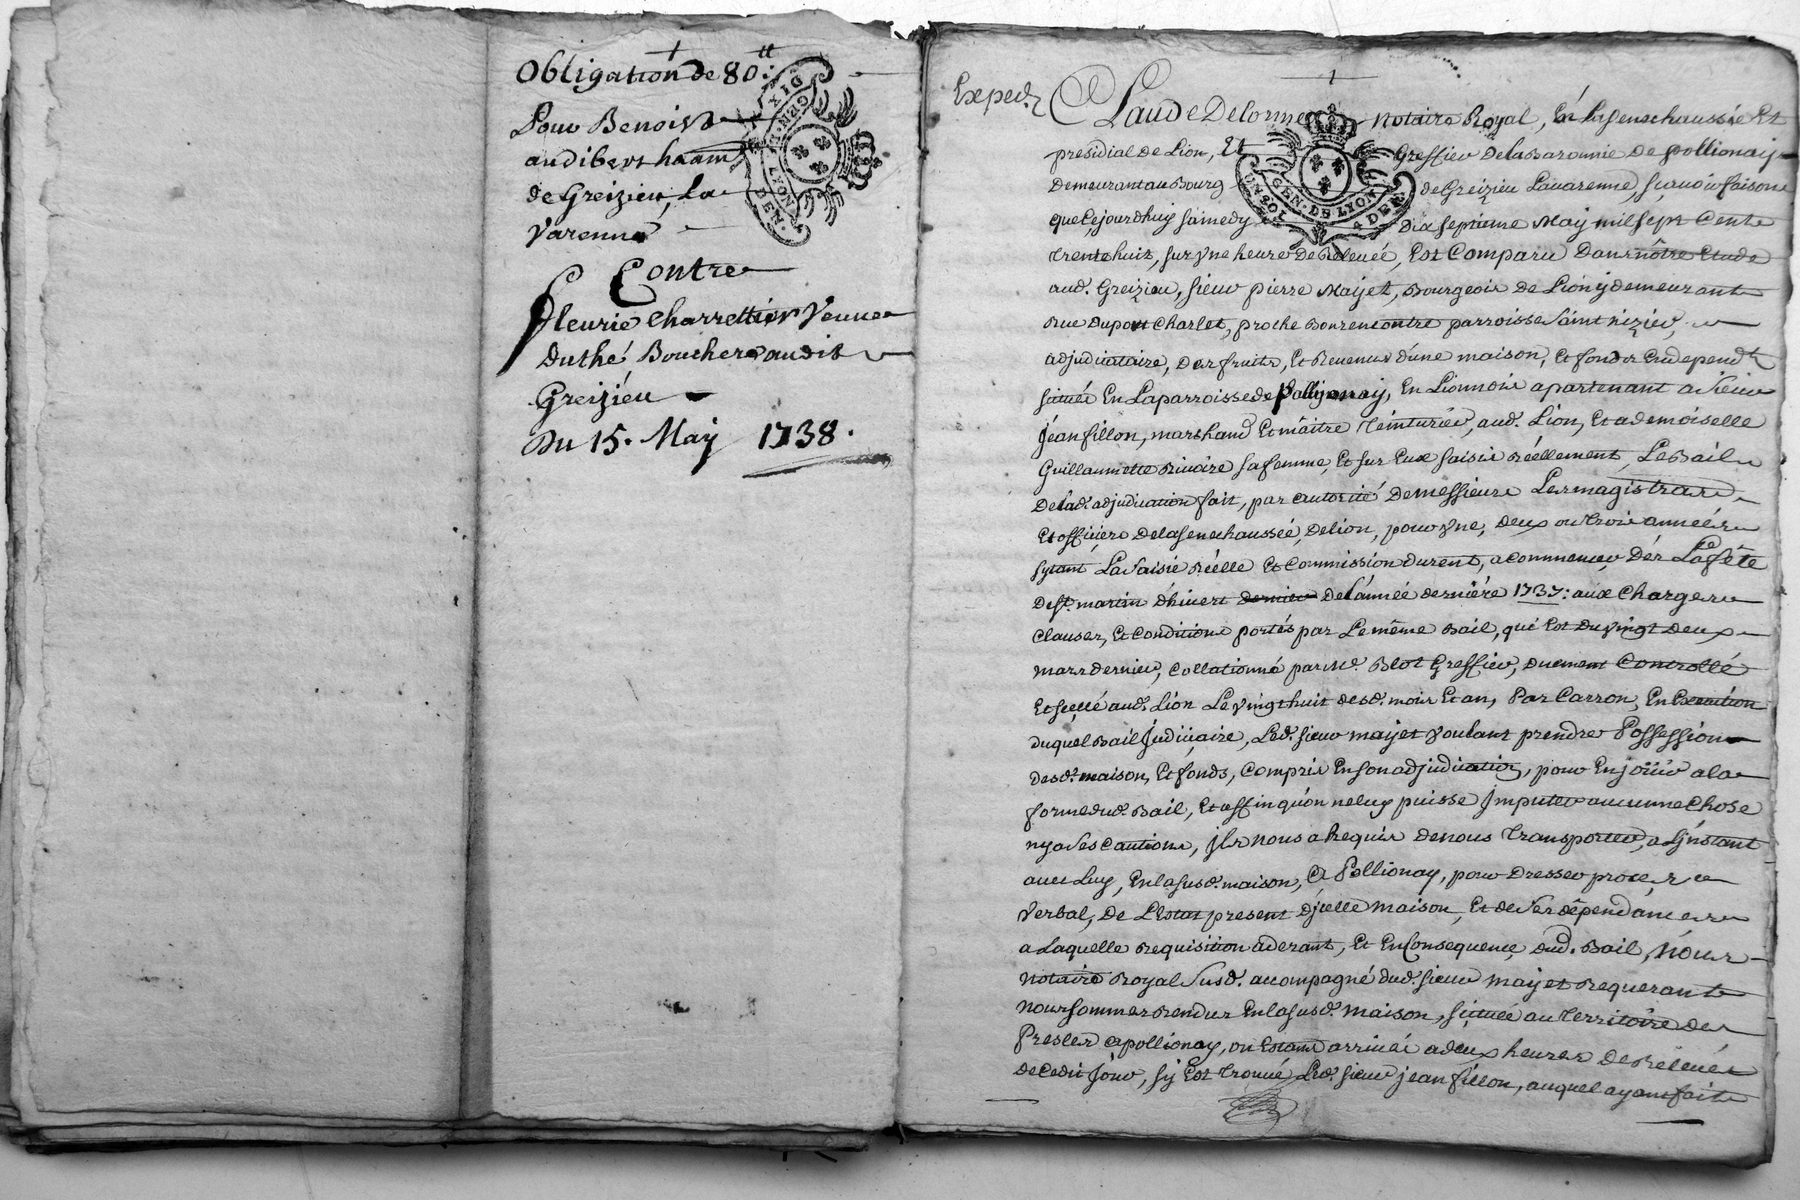 Obligation de 80ᵗᵗ:
Pour Benoist
audibert
de Greizieu, la
Varenne
Contre
fleurie charrettier Veuve
Duthé, Bouchere audit
Greizieu
Du 15. May 1738.
DIX DEN. GEN. D. LYON
Exped.
Claude Delorme Notaire Royal, En la senechaussée Et
presidial de Lion, Et Greffier De la Baronnie de Pollionay
Demeurant au Bourg de Greizieu Lavarenne, sçavoir faisons
que Cejourdhuy samedy dix septieme May mil sept Cent
UN SOL GEN. DE LYON 4 DEN.
trente huit, sur Une heure De Relevée, Est Comparu Dans nôtre Etude
aud. Greizieu, sieur pierre Mayet, Bourgeois de Lion y demeurant
rue Dupont Charlet, proche Bonrencontre parroisse Saint nizier,
adjudicataire, Des fruits, Et Revenus d'une maison, et fonds En dependt
situés En La parroisse de Pollionay, En Lionnois apartenant a Sieur
jean fillon, marchand Et maître teinturier, aud. Lion, Et a demoiselle
Guillaumette Riviere sa femme, Et sur Eux saisis réellement, Le Bail
De lad. adjudication fait, par autorité De messieurs Les magistrats
Et officiers De la senechaussée, De Lion, pour Une, deux ou trois années
sytant La Saisie réelle Et Commission durent, a Commencer Dés La fête
De St. martin d'hivert dernier De l'année derniére 1737: aux Charges
Clauses, Et Conditions portés par Le même Bail, qui Est Du Vingt Deux
mars dernier, Collationné par Me. Blot Greffier, Duement Controllé
Et scellé aud. Lion Le Vingt huit desd. mois Et an, Par Carron, En Execution
duquel Bail Judiciaire, Led. sieur mayet Voulant prendre Possession
desd. maison, Et fonds, Compris En son adjudication, pour En joüir a la
forme dud. Bail, Et affin qu'on ne luy puisse Imputer aucunne Chose
ny a Ses Cautions, Il nous a Requis de nous transporter, a L'instant
avec Luy, En la susd. maison, a Pollionay, pour Dresser procez
Verbal, de L'Etat present d'jcelle Maison, Et de Ses dépendances
a Laquelle Requisition aderant, Et En Consequence dud. Bail, Nous
Notaire Royal Susd. accompagné dud. sieur Mayet Requerant
Nous sommes Rendus En la susd. maison, située au Territoire des
Presles a pollionay, ou Etant arrivés a deux heures De Relevée
de Cedit Jour, s'y Est trouvé Led. sieur jean fillon, auquel ayant fait